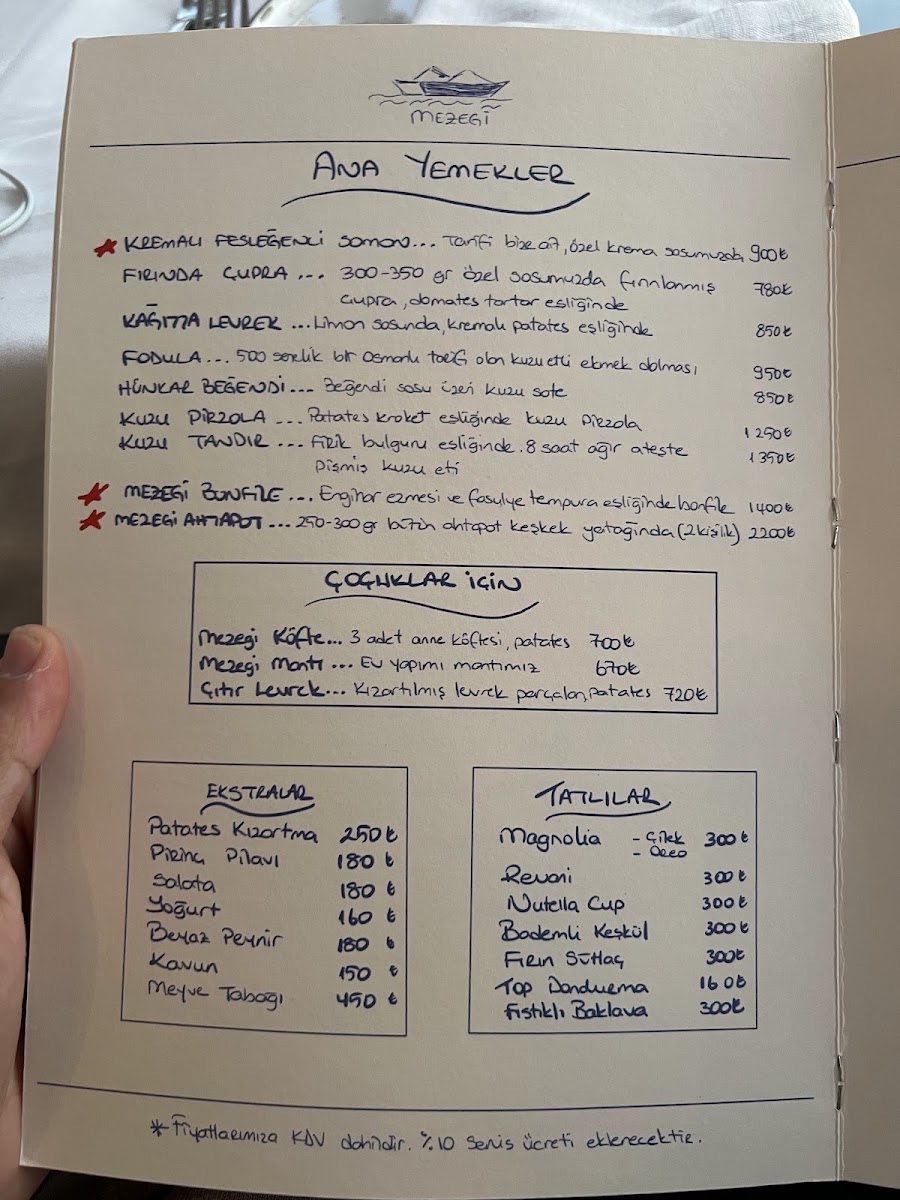 MEZEGİ
ANA YEMEKLER
KREMALI FESLEĞENLİ SOMON... Tarifi bize ait, özel krema sosumuzda 900₺
FIRINDA ÇUPRA ... 300-350 gr özel sosumuzda fırınlanmış 780₺
çupra, domates tartar eşliğinde
KAĞITTA LEVREK ... Limon sosunda, kremalı patates eşliğinde 850₺
FODULA... 500 senelik bir Osmanlı tarifi olan kuzu etli ekmek dolması 950₺
HÜNKAR BEĞENDİ... Beğendi sosu üzeri kuzu sote 850₺
KUZU PİRZOLA ... Patates kroket eşliğinde kuzu pirzola 1250₺
KUZU TANDIR ... Firik bulguru eşliğinde. 8 saat ağır ateşte 1350₺
pişmiş kuzu eti
MEZEGİ BONFİLE... Enginar ezmesi ve fasulye tempura eşliğinde bonfile 1400₺
MEZEGİ AHTAPOT... 250-300 gr bütün ahtapot keşkek yatağında (2 kişilik) 2200₺
ÇOÇUKLAR İÇİN
Mezegi Köfte... 3 adet anne köftesi, patates 700₺
Mezegi Mantı ... Ev yapımı mantımız 670₺
Çıtır Levrek... Kızartılmış levrek parçaları, patates 720₺
EKSTRALAR
Patates Kızartma 250₺
Pirinç Pilavı 180₺
Salata 180₺
Yoğurt 160₺
Beyaz Peynir 180₺
Kavun 150₺
Meyve Tabağı 450₺
TATLILAR
Magnolia - Çilek 300₺
- Oreo
Revani 300₺
Nutella Cup 300₺
Bademli Keşkül 300₺
Fırın Sütlaç 300₺
Top Dondurma 160₺
Fıstıklı Baklava 300₺
* Fiyatlarımıza KDV dahildir. %10 Servis ücreti eklenecektir.